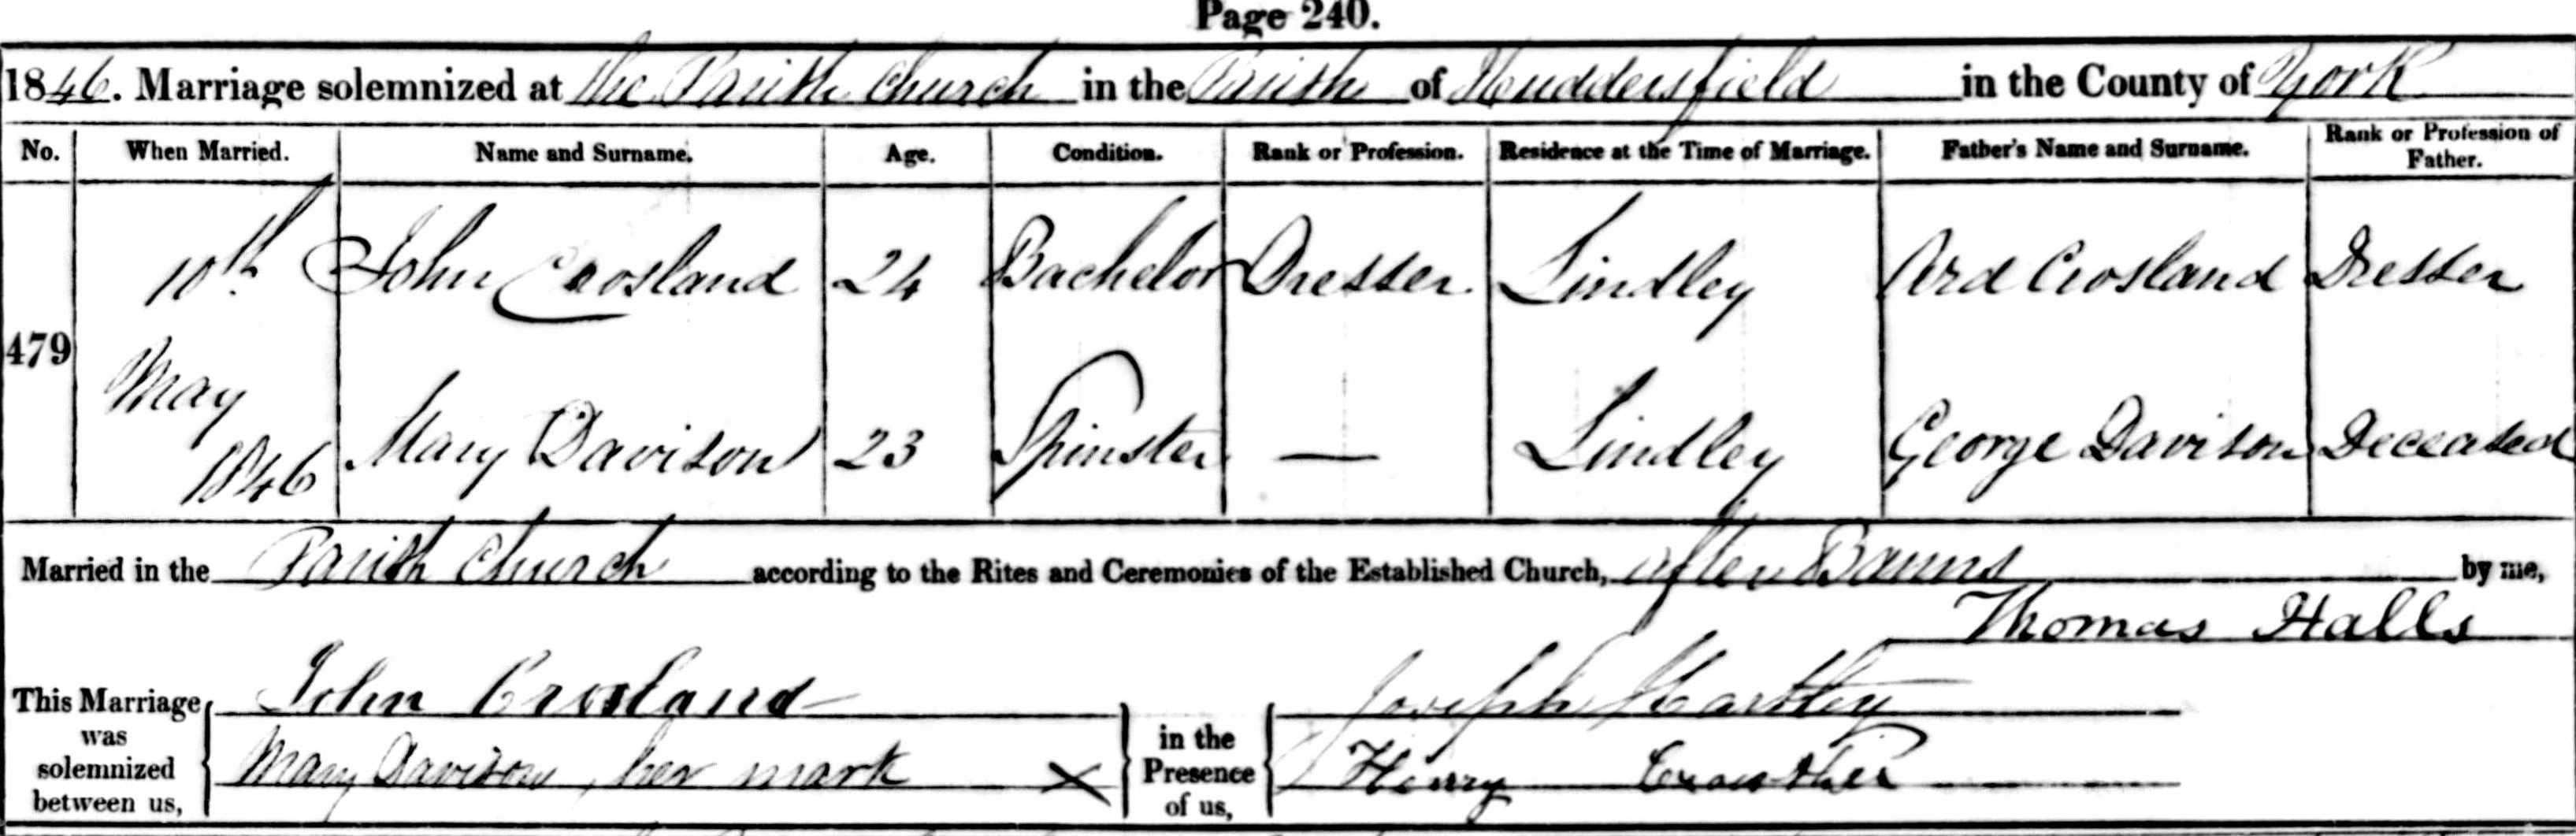 Page 240.
1846. Marriage solemnized at the Parish Church in the Parish of Huddersfield in the County of York
No. When Married. Name and Surname. Age. Condition. Rank or Profession. Residence at the Time of Marriage. Father's Name and Surname. Rank or Profession of Father.
479 10th May 1846 John Crosland 24 Bachelor Dresser Lindley Ard Crosland Dresser
Mary Davison 23 Spinster — Lindley George Davison Deceased
Married in the Parish Church according to the Rites and Ceremonies of the Established Church, after Banns by me,
Thomas Halls
This Marriage was solemnized between us, John Crosland
Mary Davison, her mark X
in the Presence of us, Joseph Hartley
Henry Crowther